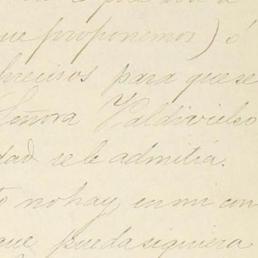 que proponemos) ó
precisos para que se
Señora Valdivielso
dad se le admitía.
no hay en mi con
que pueda siquiera